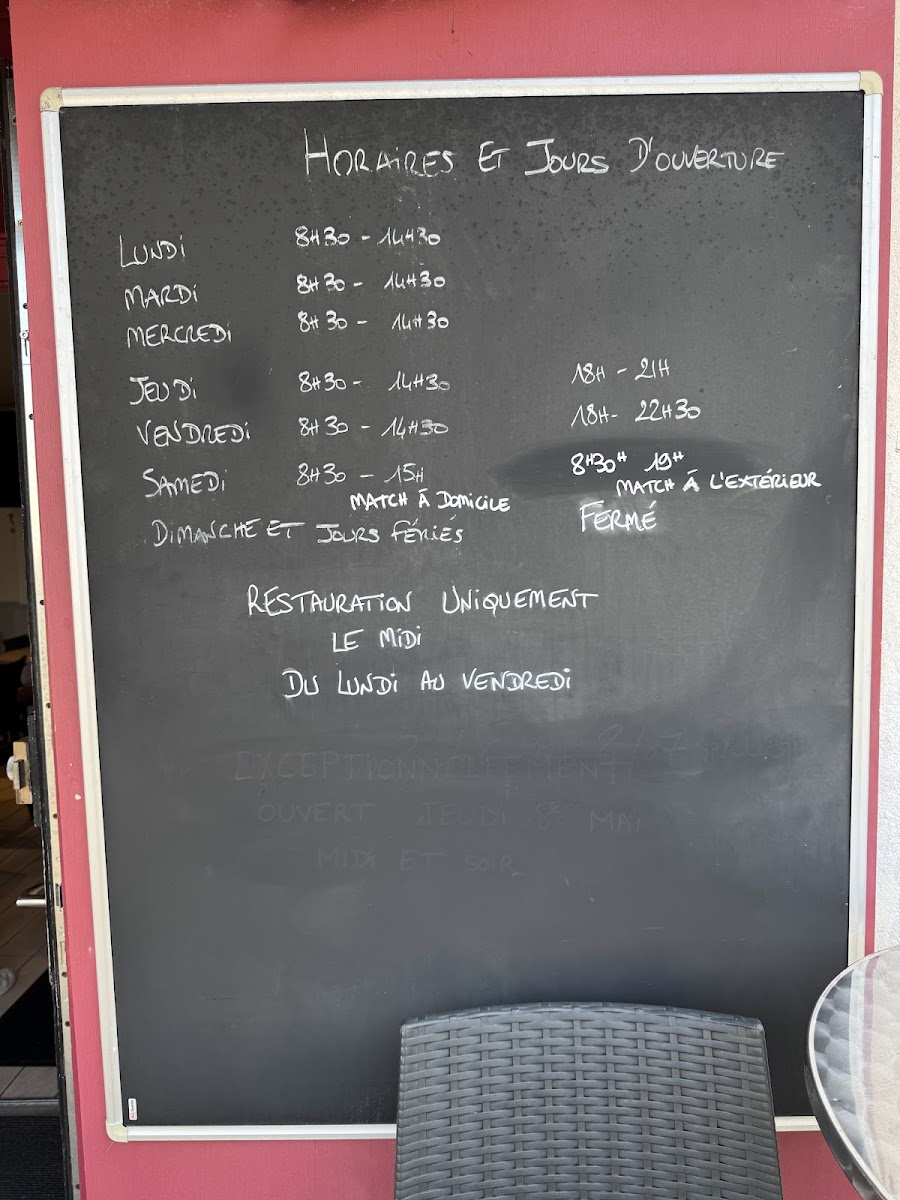 HORAIRES ET JOURS D'OUVERTURE
LUNDI 8H30 - 14H30
MARDI 8H30 - 14H30
MERCREDI 8H30 - 14H30
JEUDI 8H30 - 14H30 18H - 21H
VENDREDI 8H30 - 14H30 18H - 22H30
SAMEDI 8H30 - 15H 8H30H 19H
MATCH À DOMICILE MATCH À L'EXTÉRIEUR
DIMANCHE ET JOURS FÉRIÉS FERMÉ
RESTAURATION UNIQUEMENT
LE MIDI
DU LUNDI AU VENDREDI
EXCEPTIONNELLEMENT
OUVERT JEUDI 8 MAI
MIDI ET SOIR